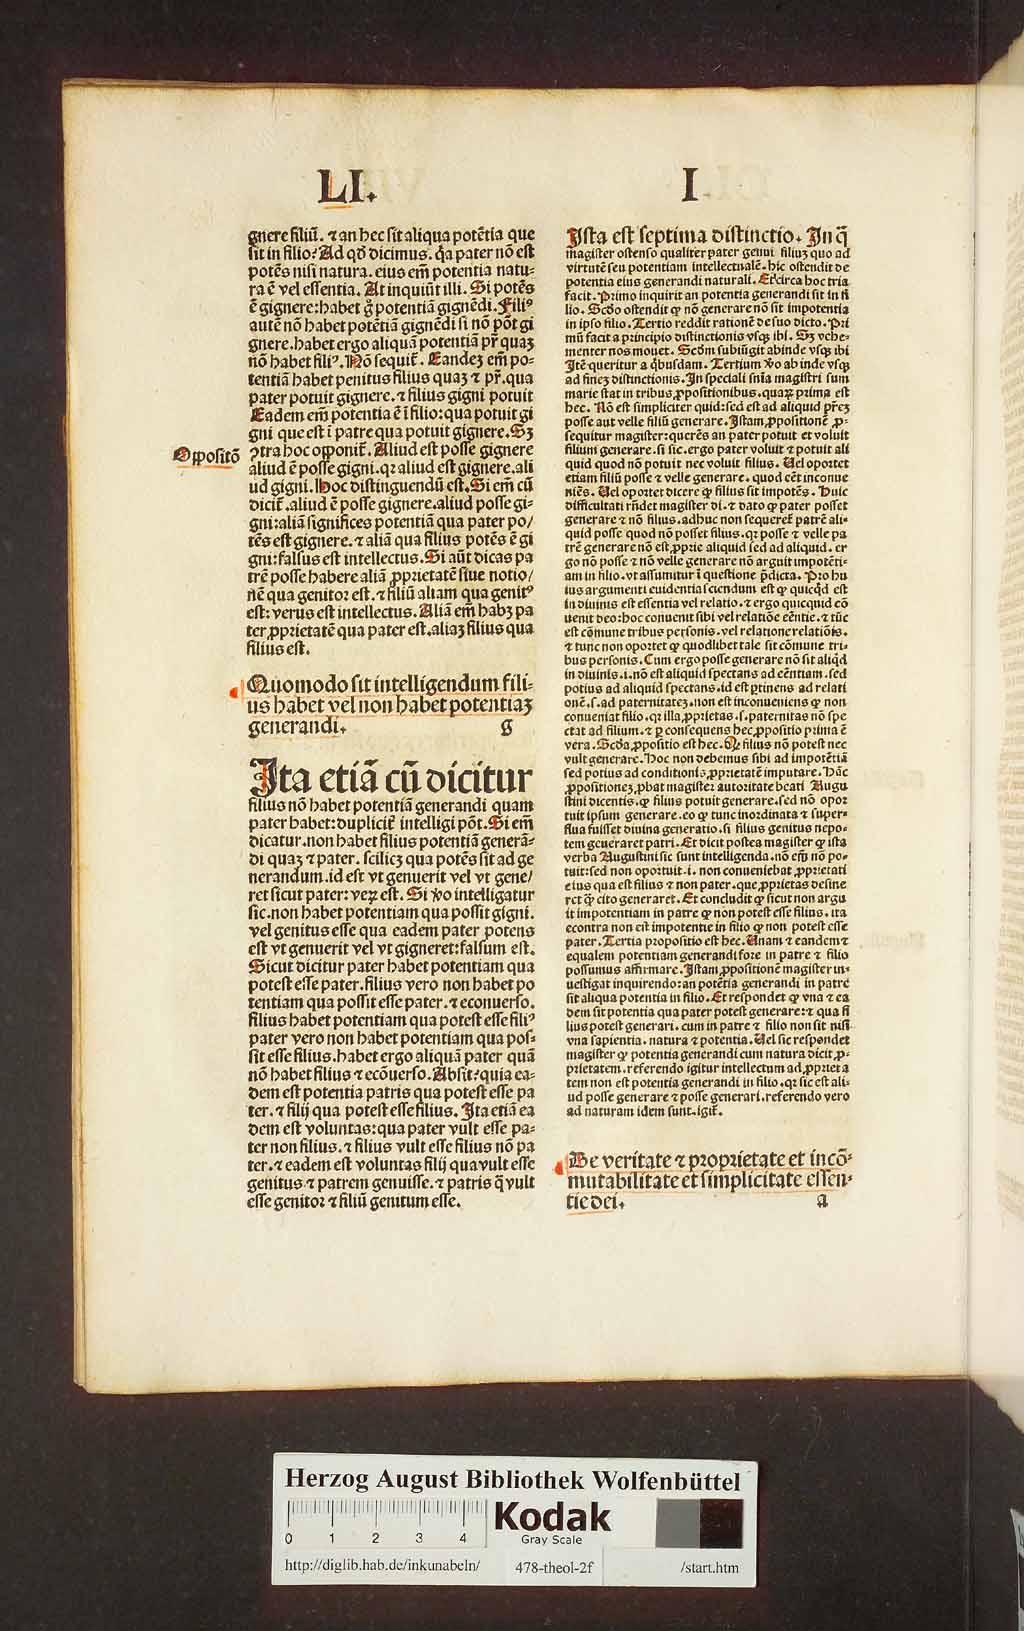 LI. I
gnere filiū. ⁊ an hec sit aliqua potētia que
sit in filio: Ad qd̄ dicimus. q̄a pater nō est
potēs nisi natura. eius em̄ potentia natu-
ra ē vel essentia. At inquiūt illi. Si potēs
ē gignere: habet g̊ potentiā gignēdi. Filiꝰ
autē nō habet potētiā gignēdi si nō pōt gi
gnere. habet ergo aliquā potentiā pr̄ quaꝫ
nō habet filiꝰ. Nō sequit᷑. Eandeꝫ em̄ po-
tentiā habet penitus filius quaꝫ ⁊ pr̄. qua
pater potuit gignere. ⁊ filius gigni potuit
Eadem em̄ potentia ē ī filio: qua potuit gi
gni que est ī patre qua potuit gignere. Sꝫ
Opposito̅
ꝯtra hoc opponit᷑. Aliud est posse gignere
aliud ē posse gigni. qꝛ aliud est gignere. ali
ud gigni. Hoc distinguendū est. Si em̄ cū
dicit᷑. aliud ē posse gignere. aliud posse gi-
gni: aliā significes potentiā qua pater po/
tēs est gignere. ⁊ aliā qua filius potēs ē gi
gni: falsus est intellectus. Si aūt dicas pa
trē posse habere aliā ꝓprietatē siue notio/
nē qua genitor est. ⁊ filiū aliam qua genitꝰ
est: verus est intellectus. Aliā em̄ habꝫ pa
ter ꝓprietatē qua pater est. aliaꝫ filius qua
filius est.
Quomodo sit intelligendum fili-
us habet vel non habet potentiaꝫ
generandi. g
Ita etiā cū dicitur
filius nō habet potentiā generandi quam
pater habet: duplicit᷑ intelligi pōt. Si em̄
dicatur. non habet filius potentiā generā-
di quaꝫ ⁊ pater. scilicꝫ qua potēs sit ad ge
nerandum. id est vt genuerit vel vt gene/
ret sicut pater: veꝝ est. Si v̊o intelligatur
sic. non habet potentiam qua possit gigni.
vel genitus esse qua eadem pater potens
est vt genuerit vel vt gigneret: falsum est.
Sicut dicitur pater habet potentiam qua
potest esse pater. filius vero non habet po
tentiam qua possit esse pater. ⁊ econuerso.
filius habet potentiam qua potest esse filiꝰ
pater vero non habet potentiam qua pos-
sit esse filius. habet ergo aliquā pater quā
nō habet filius ⁊ ecōuerso. Absit: quia ea-
dem est potentia patris qua potest esse pa
ter. ⁊ filij qua potest esse filius. Ita etiā ea
dem est voluntas: qua pater vult esse pa-
ter non filius. ⁊ filius vult esse filius nō pa
ter. ⁊ eadem est voluntas filij qua vult esse
genitus ⁊ patrem genuisse. ⁊ patris q̄ vult
esse genitor ⁊ filiū genitum esse.
Ista est septima distinctio. In q̄
magister ostenso qualiter pater genui filiuꝫ quo ad
virtutē seu potentiam intellectualē. hic ostendit de
potentia eius generandi naturali. Et circa hoc tria
facit. Primo inquirit an potentia generandi sit in fi
lio. Scd̄o ostendit ꝙ nō generare nō sit impotentia
in ipso filio. Tertio reddit rationē de suo dicto. Pri
mū facit a principio distinctionis vsqꝫ ibi. Sꝫ vehe-
menter nos mouet. Scd̄m subiūgit abinde vsqꝫ ibi
Itē queritur a q̇busdam. Tertium v̊o ab inde vsqꝫ
ad fineꝫ distinctionis. In speciali sn̄ia magistri sum
marie stat in tribus ꝓpositionibus. quaꝝ prima est
hec. Nō est simpliciter quid: sed est ad aliquid pr̄eꝫ
posse aut velle filiū generare. Istam ꝓpositionē ꝓ-
sequitur magister: querēs an pater potuit et voluit
filium generare. si sic. ergo pater voluit ⁊ potuit ali
quid quod nō potuit nec voluit filius. Uel oportet
etiam filiū posse ⁊ velle generare. quod cēt inconue
niēs. Uel oportet dicere ꝙ filius sit impotēs. Huic
difficultati rn̄det magister di. ⁊ dato ꝙ pater posset
generare ⁊ nō filius. adhuc non sequeret᷑ patrē ali-
quid posse quod nō posset filius. qꝛ posse ⁊ velle pa
trē generare nō est ꝓprie aliquid sed ad aliquid. er
go nō posse ⁊ nō velle generare nō arguit impotēti-
am in filio. vt assumitur ī questione p̄dicta. Pro hu
ius argumenti euidentia sciendum est ꝙ quicq̇d est
in diuinis est essentia vel relatio. ⁊ ergo quicquid cō
uenit deo: hoc conuenit sibi vel relatiōe eēntie. ⁊ tūc
est cōmune tribus personis. vel relatione relatiōis.
⁊ tunc non oportet ꝙ quodlibet tale sit cōmune tri-
bus personis. Cum ergo posse generare nō sit aliq̇d
in diuinis. i. nō est aliquid spectans ad eēntiam. sed
potius ad aliquid spectans. id est ꝑtinens ad relati
onē. s. ad paternitateꝫ. non est inconueniens ꝙ non
conueniat filio. qꝛ illa ꝓprietas. s. paternitas nō spe
ctat ad filium. ⁊ ꝑ consequens hec ꝓpositio prima ē
vera. Scd̄a ꝓpositio est hec. Ꝙ filius nō potest nec
vult generare. Hoc non debemus sibi ad impotētiā
sed potius ad conditionis ꝓprietatē imputare. Hāc
ꝓpositioneꝫ ꝓbat magister autoritate beati Augu
stini dicentis. ꝙ filius potuit generare. sed nō opor
tuit ipsum generare. eo ꝙ tunc inordinata ⁊ super-
flua fuisset diuina generatio. si filius genitus nepo-
tem generaret patri. Et dicit postea magister ꝙ ista
verba Augustini sic sunt intelligenda. nō em̄ nō po-
tuit: sed non oportuit. i. non conueniebat ꝓprietati
eius qua est filius ⁊ non pater. que ꝓprietas desine
ret q̄ cito generaret. Et concludit ꝙ sicut non argu
it impotentiam in patre ꝙ non potest esse filius. ita
econtra non est impotentie in filio ꝙ non potest esse
pater. Tertia propositio est hec. Unam ⁊ eandem ⁊
equalem potentiam generandi fore in patre ⁊ filio
possumus affirmare. Istam ꝓpositionē magister in-
uestigat inquirendo: an potētia generandi in patre
sit aliqua potentia in filio. Et respondet ꝙ vna ⁊ ea
dem sit potentia qua pater potest generare: ⁊ qua fi
lius potest generari. cum in patre ⁊ filio non sit nisi
vna sapientia. natura ⁊ potentia. Uel sic respondet
magister ꝙ potentia generandi cum natura dicit ꝓ-
prietatem. referendo igitur intellectum ad ꝓprieta
tem non est potentia generandi in filio. qꝛ sic est ali-
ud posse generare ⁊ posse generari. referendo vero
ad naturam idem sunt. igit᷑.
De veritate ⁊ proprietate et incō-
mutabilitate et simplicitate essen-
tie dei. a
Herzog August Bibliothek Wolfenbüttel
0 1 2 3 4
Kodak
Gray Scale
http://diglib.hab.de/inkunabeln/ 478-theol-2f /start.htm